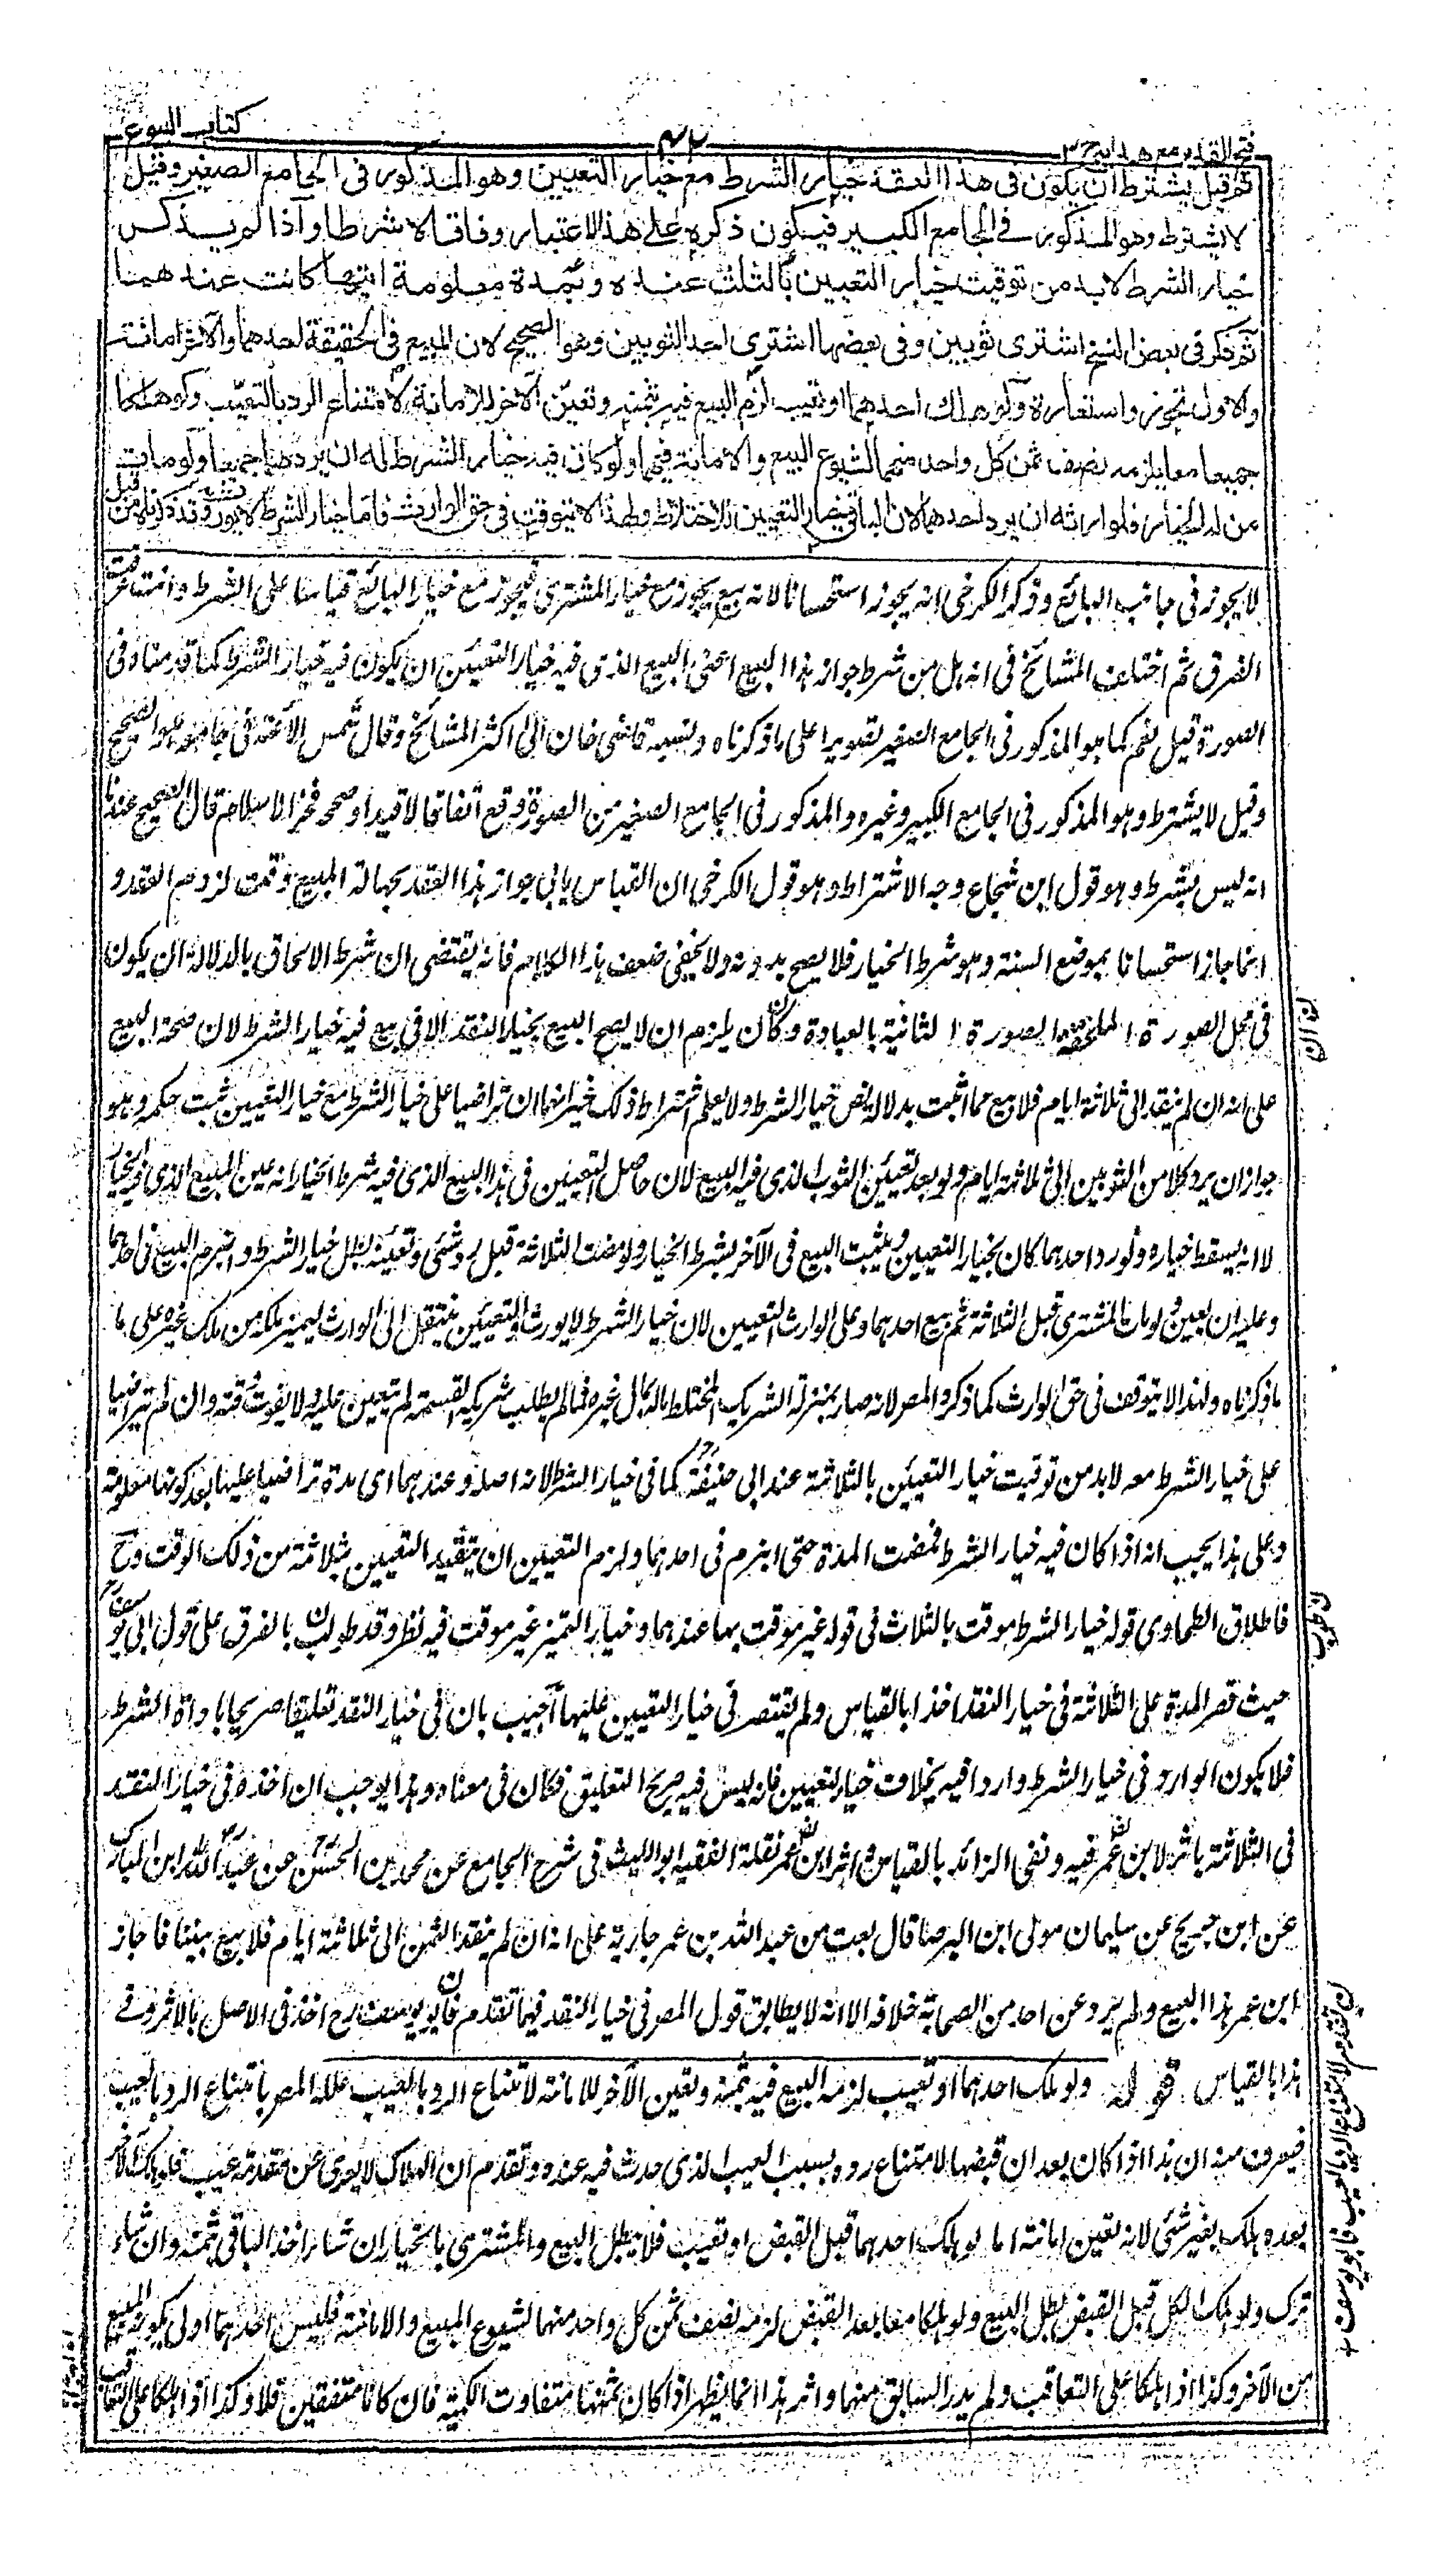 فتح القدير مع هدايہ ج ٣
كتاب البيوع
ثم قيل يشترط ان يكون فى هذا العقد خيار الشرط مع خيار التعيين وهو المذكور فى الجامع الصغير وقيل
لا يشترط وهو المذكور فى الجامع الكبير فيكون ذكره على هذا الاعتبار وفاقا لا شرطا واذا لم يذكر
خيار الشرط لابد من توقيت خيار التعيين بالثلث عنده وبمدة معلومة ايتها كانت عندهما
ثم ذكر فى بعض النسخ اشترى ثوبين وفى بعضها اشترى احد الثوبين وهو الصحيح لان المبيع فى الحقيقة احدهما والآخر امانة
والاول تجوز واستعارة ولو هلك احدهما او تعيب لزم البيع فيه بثمنه وتعين الآخر للامانة لامتناع الرد بالتعيب ولو هلكا
جميعا معا يلزمه نصف ثمن كل واحد منهما لشيوع البيع والامانة فيهما ولو كان فيه خيار الشرط له ان يردهما جميعا ولو مات
من له الخيار فلوارثه ان يرد احدهما لان الباقى خيار التعيين للاختلاط ولهذا لا يتوقت فى حق الوارث فاما خيار الشرط لا يورث وقد ذكرناه من قبل
لا يجوز فى جانب البائع وذكر الكرخى انه يجوز استحسانا لانه بيع يجوز مع خيار المشترى فيجوز مع خيار البائع قياسا على الشرط وانت عرفت
الفرق ثم اختلف المشائخ فى انه هل من شرط جواز هذا البيع اعنى البيع الذى فيه خيار التعيين ان يكون فيه خيار الشرط كما قدمناه فى
الصورة قيل نعم كما هو المذكور فى الجامع الصغير تصويرا على ما ذكرناه ونسبه قاضى خان الى اكثر المشائخ وقال شمس الائمة فى جامعه هو الصحيح
وقيل لا يشترط وهو المذكور فى الجامع الكبير وغيره والمذكور فى الجامع الصغير من الصورة وقع اتفاقا لا قيدا وصححه فخر الاسلام قال الصحيح عندنا
انه ليس بشرط وهو قول ابن شجاع وجه الاشتراط وهو قول الكرخى ان القياس يابى جواز هذا العقد بجهالة المبيع وقت لزوم العقد و
انما جاز استحسانا بموضع السنة وهو شرط الخيار فلا يصح بدونه ولا يخفى ضعف هذا الكلام فانه يقتضى ان شرط الالحاق بالدلالة ان يكون
فى محل الصورة الملحقة الصورة الثانية بالعبادة وكان يلزم ان لا يصح البيع بخيار النقد الا فى بيع فيه خيار الشرط لان صحة البيع
على انه ان لم ينقد الى ثلاثة ايام فلا بيع مما اثبت بدلالة نص خيار الشرط ولا يعلم اشتراط ذلك غير انهما ان تراضيا على خيار الشرط مع خيار التعيين ثبت حكمه وهو
جواز ان يرد كلا من الثوبين الى ثلاثة ايام ولو بعد تعيين الثوب الذى فيه البيع لان حاصل التعيين فى هذا البيع الذى فيه شرط الخيار انه عين المبيع الذى فيه الخيار
لا انه يسقط خياره ولو رد احدهما كان بخيار التعيين ويثبت البيع فى الآخر بشرط الخيار ولو مضت الثلاثة قبل رد شئ وتعينه بطل خيار الشرط وانبرم البيع فى احدهما
وعليه ان يعين ولو مات المشترى قبل الثلاثة تم بيع احدهما وعلى الوارث التعيين لان خيار الشرط لا يورث والتعيين ينتقل الى الوارث ليميز ملكه من ملك غيره على ما
ما ذكرناه ولهذا لا يتوقت فى حق الوارث كما ذكره المصر لانه صار بمنزلة الشريك المختلط ماله بمال غيره فما لم يطلب شريكه القسمة لم يتعين عليه ولا يفوت وقته وان لم يتراضيا
على خيار الشرط معه لابد من توقيت خيار التعيين بالثلاثة عند ابى حنيفةؒ كما فى خيار الشرط لانه اصله وعندهما اى مدة تراضيا عليها بعد كونها معلومة
وعلى هذا يجب انه اذا كان فيه خيار الشرط فمضت المدة حتى انبرم فى احدهما ولزم التعيين ان يتقيد التعيين بثلاثة من ذلك الوقت وح
فاطلاق الطحاوى قوله خيار الشرط موقت بالثلاث فى قوله غير موقت بها عندهما وخيار التميز غير موقت فيه نظر وقد طولب بالفرق على قول ابى يوسف
حيث قصر المدة على الثلاثة فى خيار النقد اخذا بالقياس ولم يقتصر فى خيار التعيين عليها اجيب بان فى خيار النقد تعليقا صريحا باداة الشرط
فلا يكون الوارد فى خيار الشرط واردا فيه بخلاف خيار التعيين فانه ليس فيه صريح التعليق فكان فى معناه وهذا يوجب ان اخذه فى خيار النقد
فى الثلاثة باثر لابن عمر فيه ونفى الزائد بالقياس اثر ابن عمر نقله الفقيه ابو الليث فى شرح الجامع عن محمد بن الحسن عن عبد الله ابن المبارك
عن ابن جريج عن سليمان مولى ابن البرصا قال بعت من عبد الله بن عمر جارية على انه ان لم ينقد الثمن الى ثلاثة ايام فلا بيع بيننا فاجاز
ابن عمر هذا البيع ولم يرد عن احد من الصحابة خلافه الا انه لا يطابق قول المصر فى خيار النقد فيما تقدم فابو يوسف رح اخذ فى الاصل بالاثر وفى
هذا بالقياس قوله ولو هلك احدهما او تعيب لزمه البيع فيه بثمنه وتعين الآخر للامانة لامتناع الرد بالعيب علله المصر بامتناع الرد بالعيب
فيعرف منه ان هذا اذا كان بعد ان قبضها لامتناع رده بسبب العيب الذى حدث فيه عنده وتقدم ان الهلاك لا يعرى عن مقدمة عيب فلو هلك الآخر
بعده هلك بغير شئ لانه تعين امانة اما لو هلك احدهما قبل القبض او تعيب فلا يبطل البيع والمشترى بالخيار ان شاء اخذ الباقى بثمنه وان شاء
ترك ولو هلك الكل قبل القبض بطل البيع ولو هلكا معا بعد القبض لزمه نصف ثمن كل واحد منهما لشيوع المبيع والامانة فليس احدهما اولى بكونه المبيع
من الآخر وكذا اذا هلكا على التعاقب ولم يدر السابق منهما واثر هذا انما يظهر اذا كان ثمنهما متفاوت الكمية فان كانا متفقين فلا وكذا اذا هلكا على التعاقب